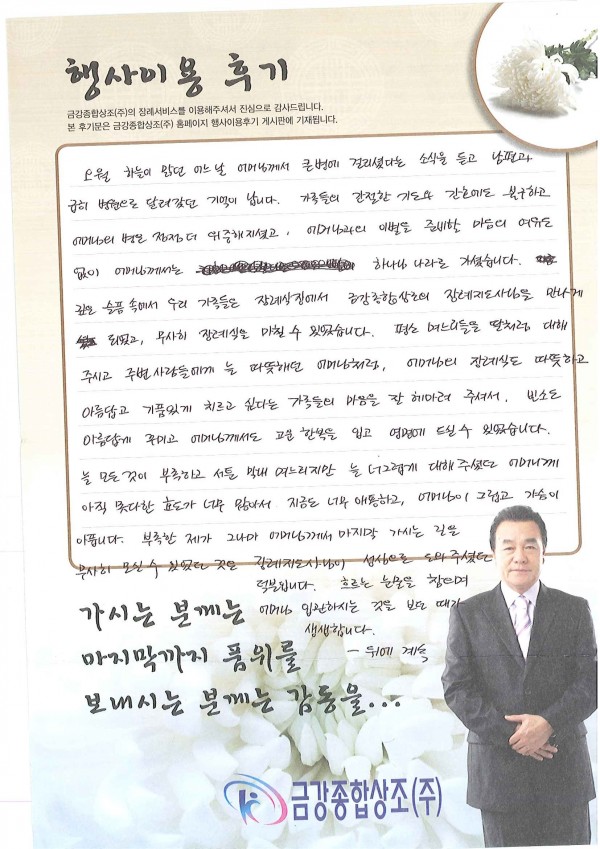 행사이용 후기
금강종합상조(주)의 장례서비스를 이용해주셔서 진심으로 감사드립니다.
본 후기문은 금강종합상조(주) 홈페이지 행사이용후기 게시판에 기재됩니다.
오월 하늘이 맑던 어느 날 어머님께서 큰병에 걸리셨다는 소식을 듣고 남편과
급히 병원으로 달려갔던 기억이 납니다. 가족들의 간절한 기도와 간호에도 불구하고
어머님의 병은 점점 더 위중해지셨고, 어머님과의 이별을 준비할 마음의 여유도
없이 어머님께서는 하나님 나라로 가셨습니다.
깊은 슬픔 속에서 우리 가족들은 장례식장에서 금강종합상조의 장례지도사님을 만나게
되었고, 무사히 장례식을 마칠 수 있었습니다. 평소 며느리들을 딸처럼 대해
주시고 주변사람들에게 늘 따뜻했던 어머님처럼, 어머님의 장례식도 따뜻하고
아름답고 기품있게 치르고 싶다는 가족들의 마음을 잘 헤아려 주셔서, 빈소도
아름답게 꾸미고 어머님께서도 고운 한복을 입고 영면에 드실 수 있었습니다.
늘 모든것이 부족하고 서툰 막내 며느리지만 늘 너그럽게 대해주셨던 어머님께
아직 못다한 효도가 너무 많아서 지금도 너무 애통하고, 어머님이 그립고 가슴이
아픕니다. 부족한 제가 그나마 어머님께서 마지막 가시는 길을
무사히 모실 수 있었던 것은 장례지도사님이 성심으로 도와주셨던
덕분입니다. 흐르는 눈물을 참으며
어머님 입관하시는 것을 보던 때가
생생합니다.
- 뒤에 계속
가시는 분께는
마지막까지 품위를
보내시는 분께는 감동을...
금강종합상조(주)